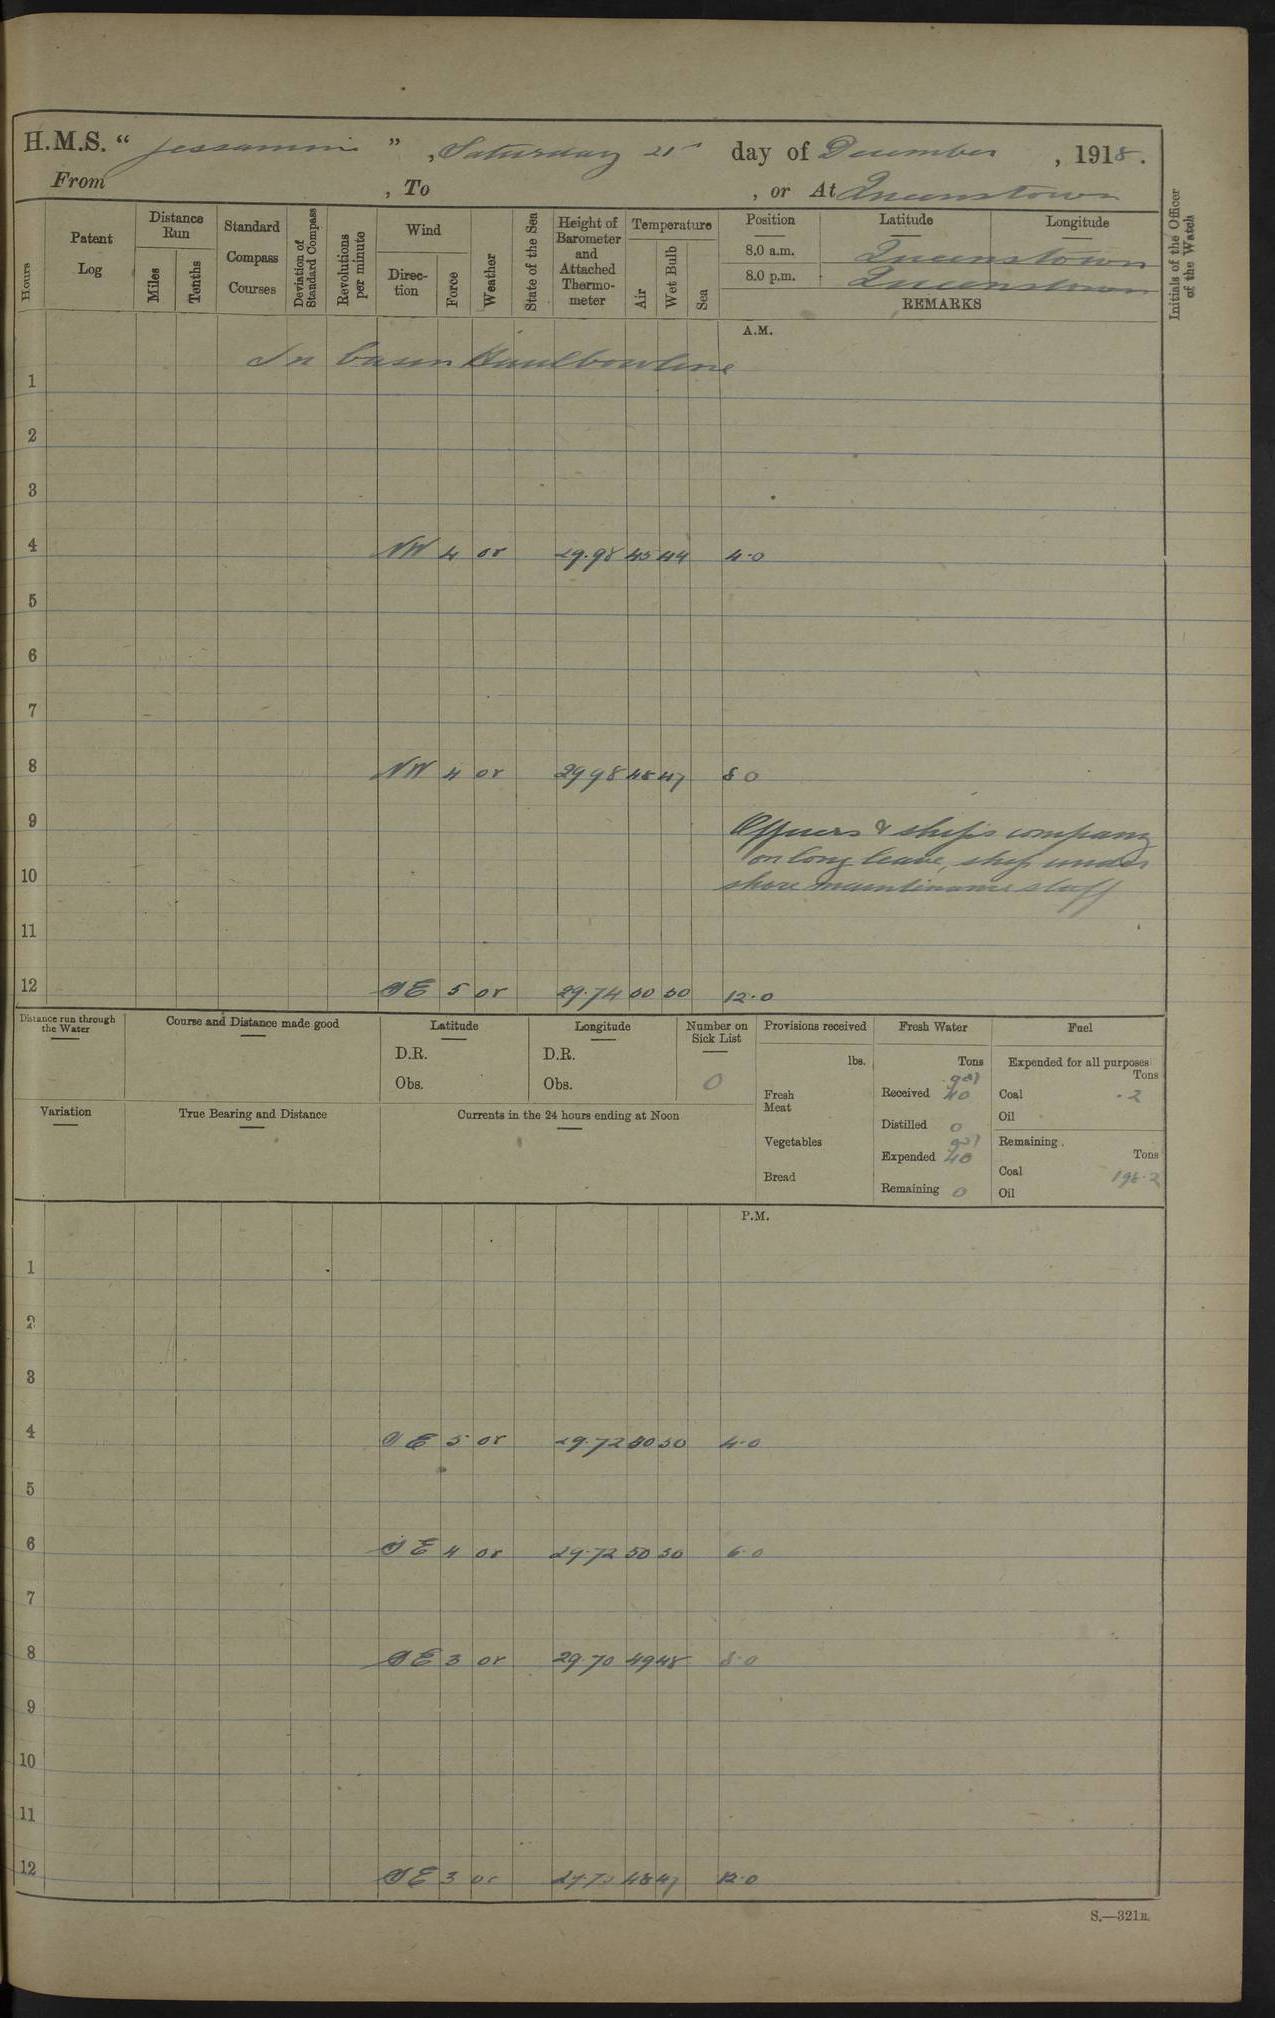 H.M.S. “ Jessamine ” , Saturday 21st day of December , 1918.
From , To , or At Queenstown
Hours
Patent Log
Distance Run
Miles
Tenths
Standard Compass Courses
Deviation of Standard Compass
Revolutions per minute
Wind
Direc-tion
Force
Weather
State of the Sea
Height of Barometer and Attached Thermo-meter
Temperature
Air
Wet Bulb
Sea
Position Latitude Longitude
8.0 a.m. Queenstown
8.0 p.m. Queenstown
REMARKS
Initials of the Officer of the Watch
A.M.
In basin Haulbowline
1
2
3
4 NW 4 or 29.98 45 44 4.0
5
6
7
8 NW 4 or 29 98 48 47 8 0
9 Officers & ship's company
on long leave, ship under
10 shore maintinance staff
11
12 SE 5 or 29.74 50 50 12.0
Distance run through the Water
Course and Distance made good
Latitude
D.R.
Obs.
Longitude
D.R.
Obs.
Number on Sick List
0
Variation
True Bearing and Distance
Currents in the 24 hours ending at Noon
Provisions received
lbs.
Fresh Meat
Vegetables
Bread
Fresh Water
Tons
gal
Received 40
Distilled 0
gal
Expended 40
Remaining 0
Fuel
Expended for all purposes
Tons
Coal .2
Oil
Remaining
Tons
Coal 198.2
Oil
P.M.
1
2
3
4 SE 5 or 29.72 50 50 4.0
5
6 SE 4 or 29.72 50 50 6.0
7
8 SE 3 or 29.70 49 48 8.0
9
10
11
12 SE 3 or 29.70 48 47 12.0
S.—321B.